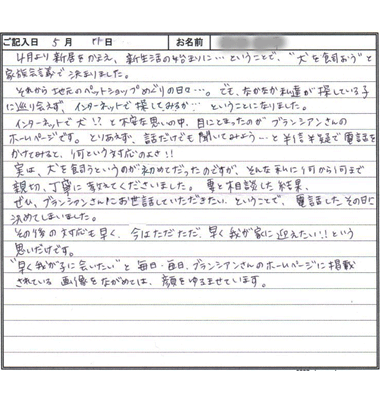 ご記入日 5月 日 お名前
4月より新居をかまえ、新生活の始まりに…ということで、"犬を飼おう"と
家族会議で決まりました。
それから地元のペットショップめぐりの日々…。でも、なかなか私達が探している子
に巡り会えず、インターネットで探してみるか…ということになりました。
インターネットで犬!?と不安な思いの中、目にとまったのがブランシアンさんの
ホームページです。とりあえず、話だけでも聞いてみよう…と半信半疑で電話を
かけてみると、何という対応のよさ!!
実は、犬を飼うというのが初めてだったのですが、そんな私に何から何まで
親切、丁寧に教えてくださいました。妻と相談した結果、
ぜひ、ブランシアンさんにお世話していただきたい、ということで、電話したその日に
決めてしまいました。
その後の対応も早く、今はただただ、早く我が家に迎えたい!!という
思いだけです。
"早く我が子に会いたい"と毎日・毎日、ブランシアンさんのホームページに掲載
されている画像をながめては、顔をゆるませています。